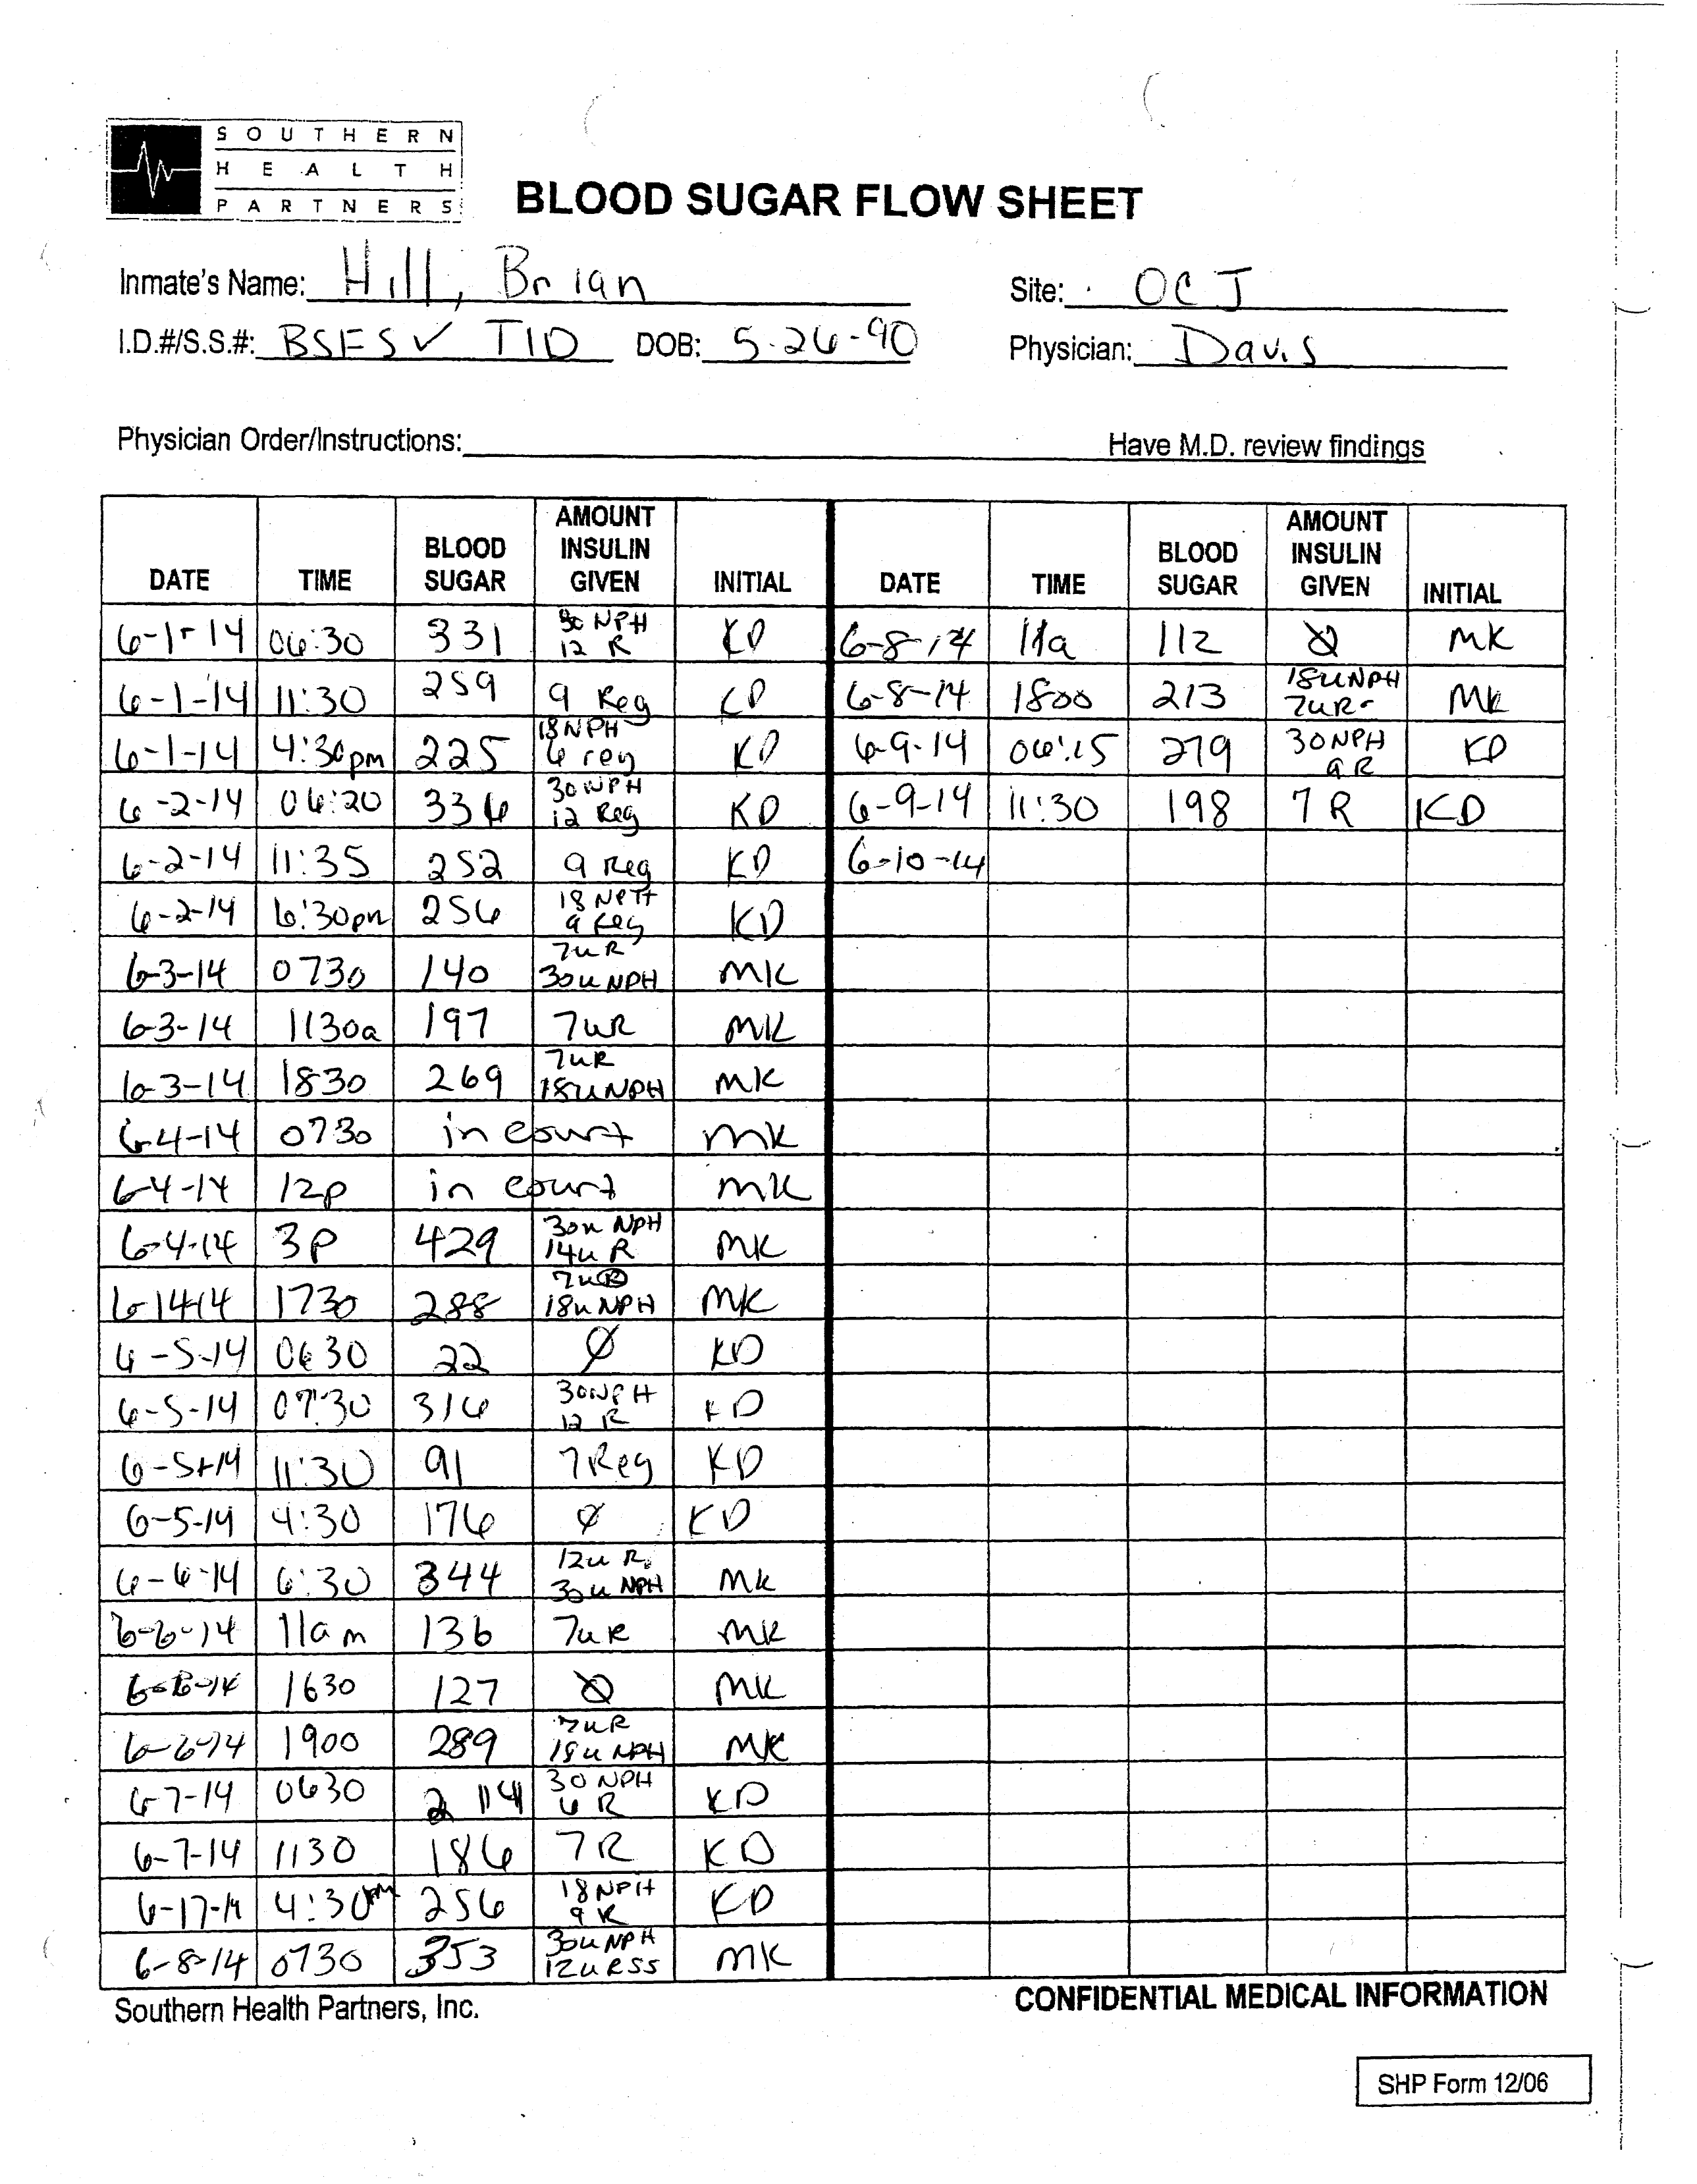 SOUTHERN
HEALTH
PARTNERS
BLOOD SUGAR FLOW SHEET
Inmate's Name: Hill, Brian Site: OCJ
I.D.#/S.S.#: BSFS ✓ TID DOB: 5-26-90 Physician: Davis
Physician Order/Instructions: Have M.D. review findings
DATE TIME BLOOD SUGAR AMOUNT INSULIN GIVEN INITIAL DATE TIME BLOOD SUGAR AMOUNT INSULIN GIVEN INITIAL
6-1-14 06:30 331 30 NPH 12 R KD 6-8-14 11a 112 Ø MK
6-1-14 11:30 259 9 Reg KD 6-8-14 1800 213 18u NPH 7uR MK
6-1-14 4:30pm 225 18 NPH 6 reg KD 6-9-14 06:15 279 30 NPH 9 R KD
6-2-14 06:20 336 30 NPH 12 Reg KD 6-9-14 11:30 198 7 R KD
6-2-14 11:35 252 9 Reg KD 6-10-14
6-2-14 6:30pm 256 18 NPH 9 Reg KD
6-3-14 0730 140 7uR 30u NPH MK
6-3-14 1130a 197 7uR MK
6-3-14 1830 269 7uR 18u NPH MK
6-4-14 0730 in court MK
6-4-14 12p in court MK
6-4-14 3p 429 30u NPH 14u R MK
6-14-14 1730 288 7u R 18u NPH MK
6-5-14 0630 22 Ø KD
6-5-14 07:30 316 30 NPH 12 R KD
6-5-14 11:30 91 7 Reg KD
6-5-14 4:30 176 Ø KD
6-6-14 6:30 344 12u R 30u NPH MK
6-6-14 11am 136 7uR MK
6-6-14 1630 127 Ø MK
6-6-14 1900 289 7uR 18u NPH MK
6-7-14 0630 30 NPH 6 R KD
6-7-14 1130 186 7 R KD
6-17-14 4:30pm 256 18 NPH 9 R KD
6-8-14 0730 353 30u NPH 12u R SS MK
Southern Health Partners, Inc. CONFIDENTIAL MEDICAL INFORMATION
SHP Form 12/06